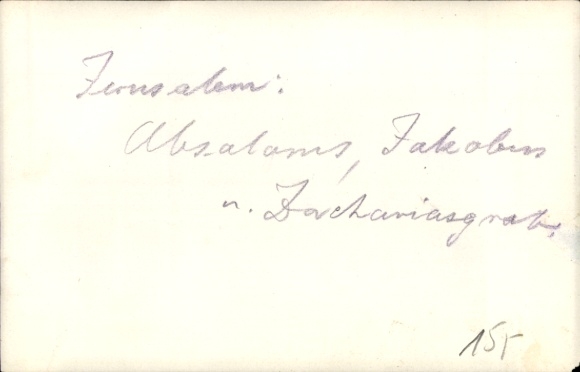 Jerusalem:
Absaloms, Jakobus
u. Zachariasgrab.
155